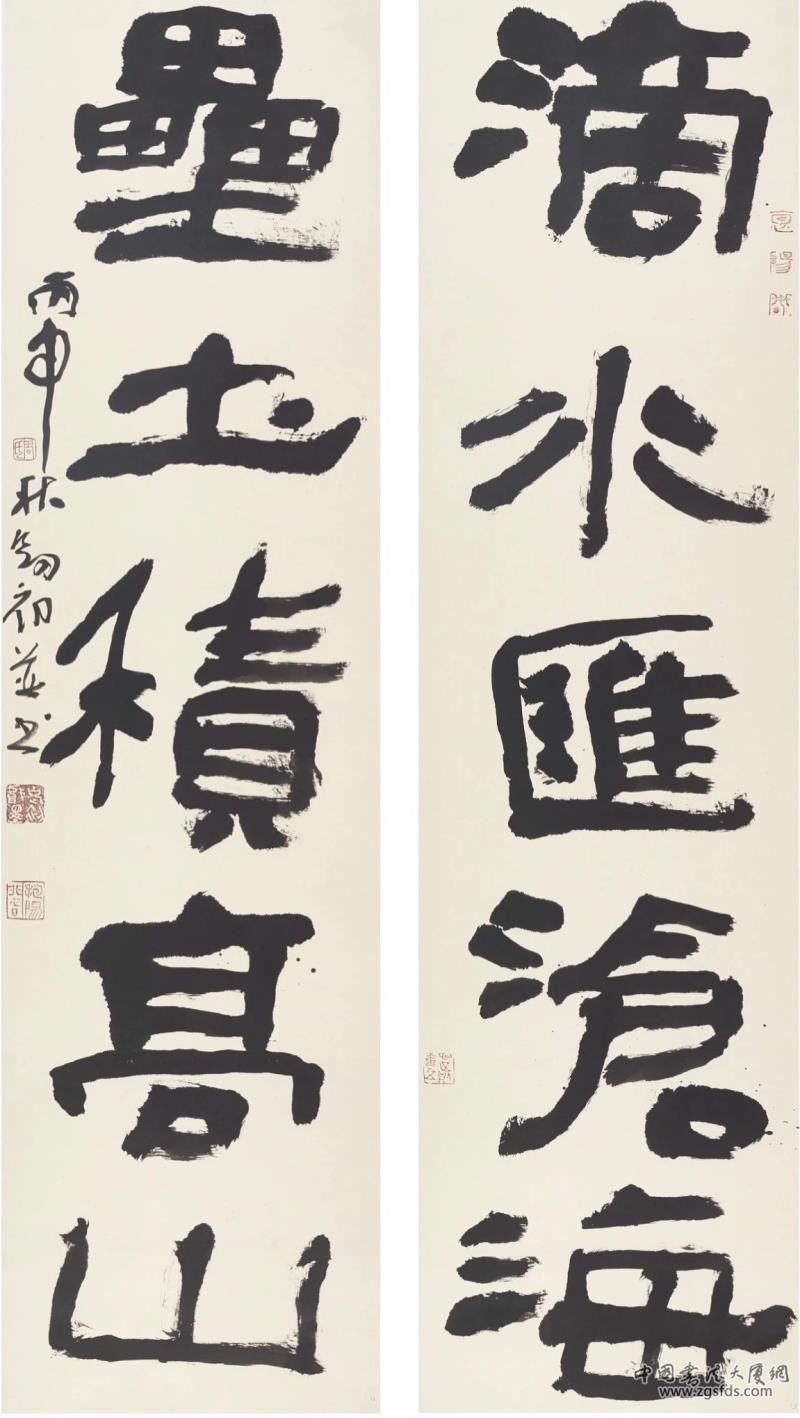 滴水匯滄海
壘土積高山
丙申秋匋初並书
中国书法大厦網
www.zgsfds.com